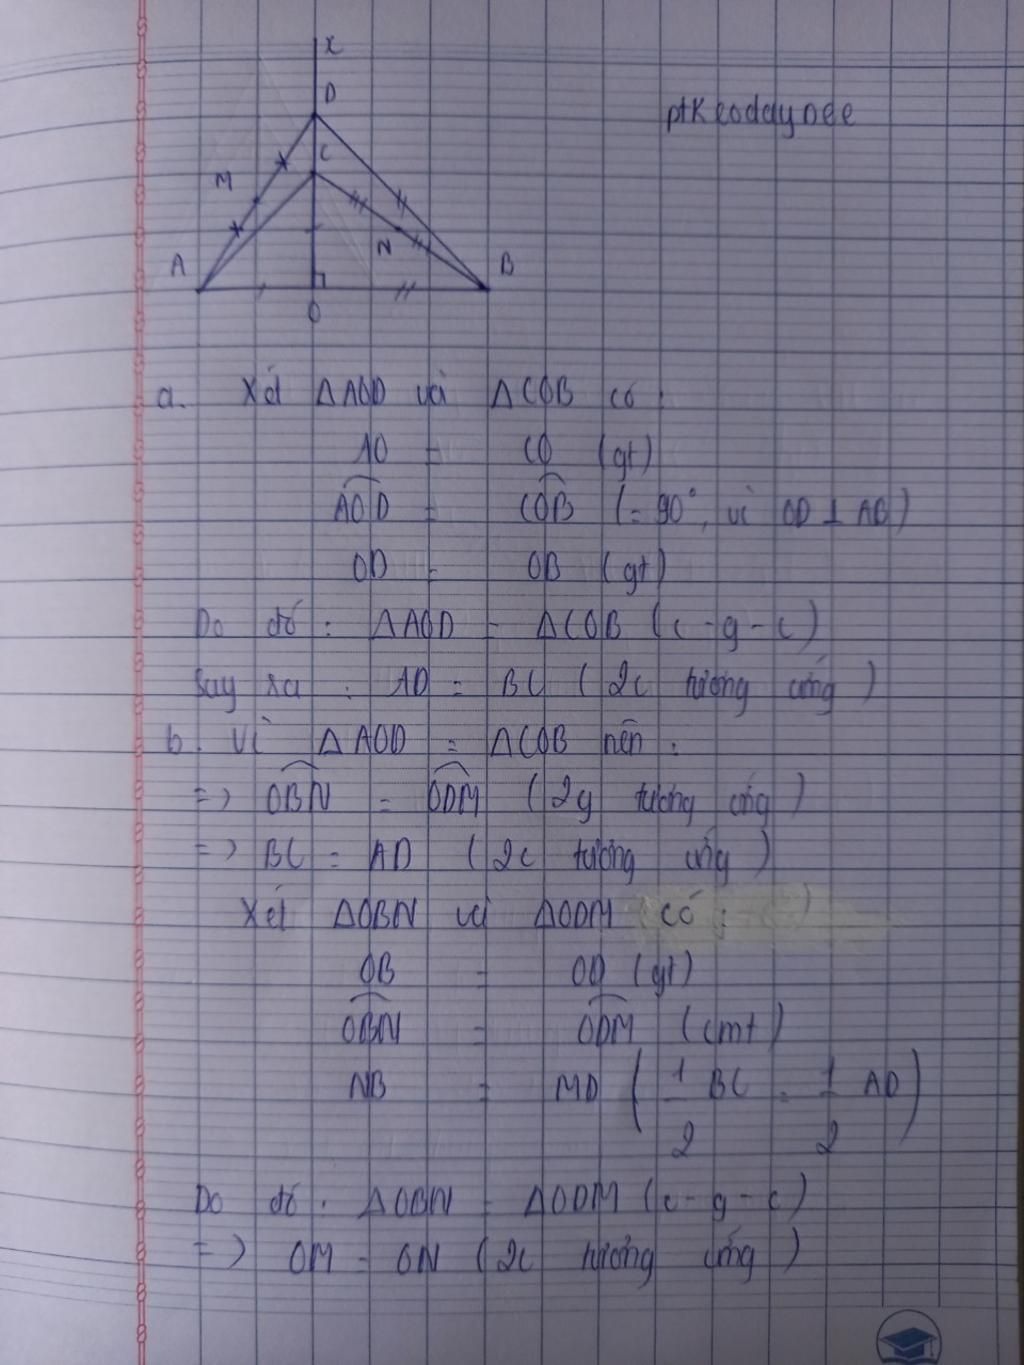 x
D
ptkeodaynee
C
M
N
A
B
O
a. Xét ΔAOD và ΔCOB có:
AO = CO (gt)
AOD = COB (= 90°, vì OD ⊥ AB)
OD = OB (gt)
Do đó: ΔAOD = ΔCOB (c-g-c)
Suy ra: AD = BC (2c tương ứng)
b. Vì ΔAOD = ΔCOB nên:
=> OBN = ODM (2g tương ứng)
=> BC = AD (2c tương ứng)
Xét ΔOBN và ΔODM có:
OB = OD (gt)
OBN = ODM (cmt)
NB = MD (1/2 BC = 1/2 AD)
Do đó: ΔOBN = ΔODM (c-g-c)
=> OM = ON (2c tương ứng)